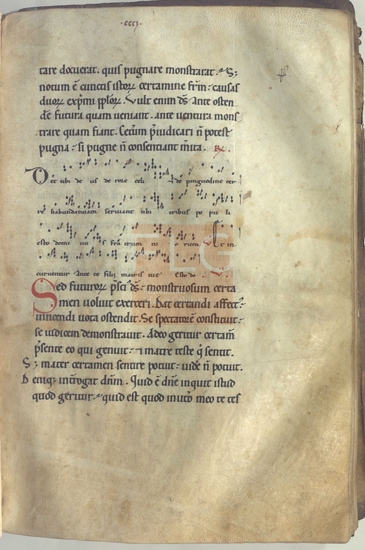 ·cccj·
tare docuerat. quis pugnare monstrarat. S;
notum ē cunctis istorū certamine frm̄. causas
duorū exp̄mi pp̄lorū. Vult enim ds̄ ante osten
dere futura quam veniant. ante ventura mons
trare quam fiant. Ceterum p̄iudicari n̄ potest
pugna. si pugne n̄ consentiant
Det tibi de us de rore celi De pinguedine ter
re habundantiam serviant tibi tribus po pu li
esto domi nus fra trum tu o rum
curventur ante te filii matris tue Esto
Sed futurorū p̄sci ds̄ monstruosum certa
men voluit exerceri. Dat certandi affectū
vincendi vota ostendit. Se spectatorē constituit
se iudicem demonstravit. Adeo geritur certam̄
p̄sente eo qui genuit. matre teste q̄ sentit.
S; mater certamen sentire potuit. vide n̄ potuit.
Deniq; int̄rogat dn̄m. Quid ē dn̄e inquit istud
quod geritur. quid est quod in utero meo te tes